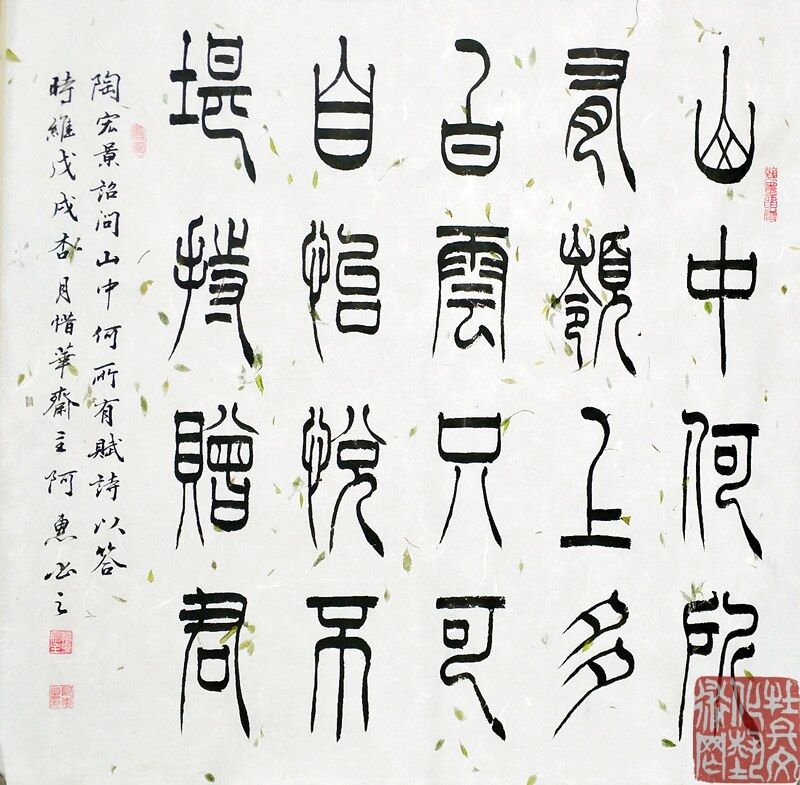 山中何所
有嶺上多
白雲只可
自怡悅不
堪持贈君
陶宏景詔問山中何所有賦詩以答
時維戊戌杏月惜華齋主阿惠書之